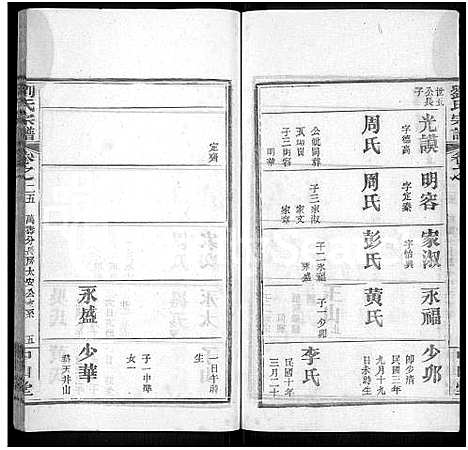 劉氏宗譜
卷之
世五
公長
子
光謨
字德高
周氏
公號問尋
子三明容
明華
明容
字定齋
周氏
子三家淑
家文
家齊
家淑
字怡興
彭氏
子二永福
永盛
永福
黃氏
子一少卯
少卯
卯少清
民國三年
九月十九
日永時生
李氏
民國十年
三月二十
一日午時
生
定齋
永盛
少華
子一中舉
女一
葬天井山
劉氏宗譜
卷之二五
萬壽分長房大安公支系
五